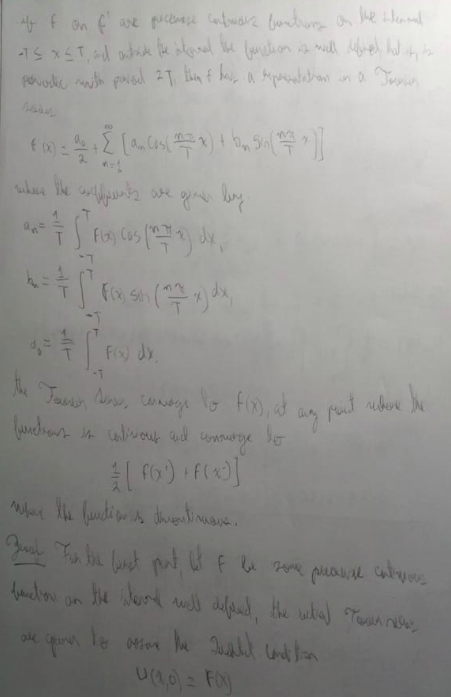 If f an f' are piecewise continuous functions on the interval
-T ≤ x ≤ T, and outside the interval the function is well defined, but is
periodic with period 2T, then f has a representation in a Fourier
series
f(x) = a₀/2 + ∑_{n=1}^{∞} [aₙ cos(nπ/T x) + bₙ sin(nπ/T x)]
where the coefficients are given by:
aₙ = 1/T ∫_{-T}^{T} f(x) cos(nπ/T x) dx,
bₙ = 1/T ∫_{-T}^{T} f(x) sin(nπ/T x) dx,
a₀ = 1/T ∫_{-T}^{T} f(x) dx.
the Fourier series, converge to f(x), at any point where the
functions is continuous and converge to
1/2 [f(x⁺) + f(x⁻)]
where the function is discontinuous.
Proof: For the first part, let f be some piecewise continuous
function on the interval well defined, the initial Fourier series
are given to assume the initial condition
U(x,0) = f(x)